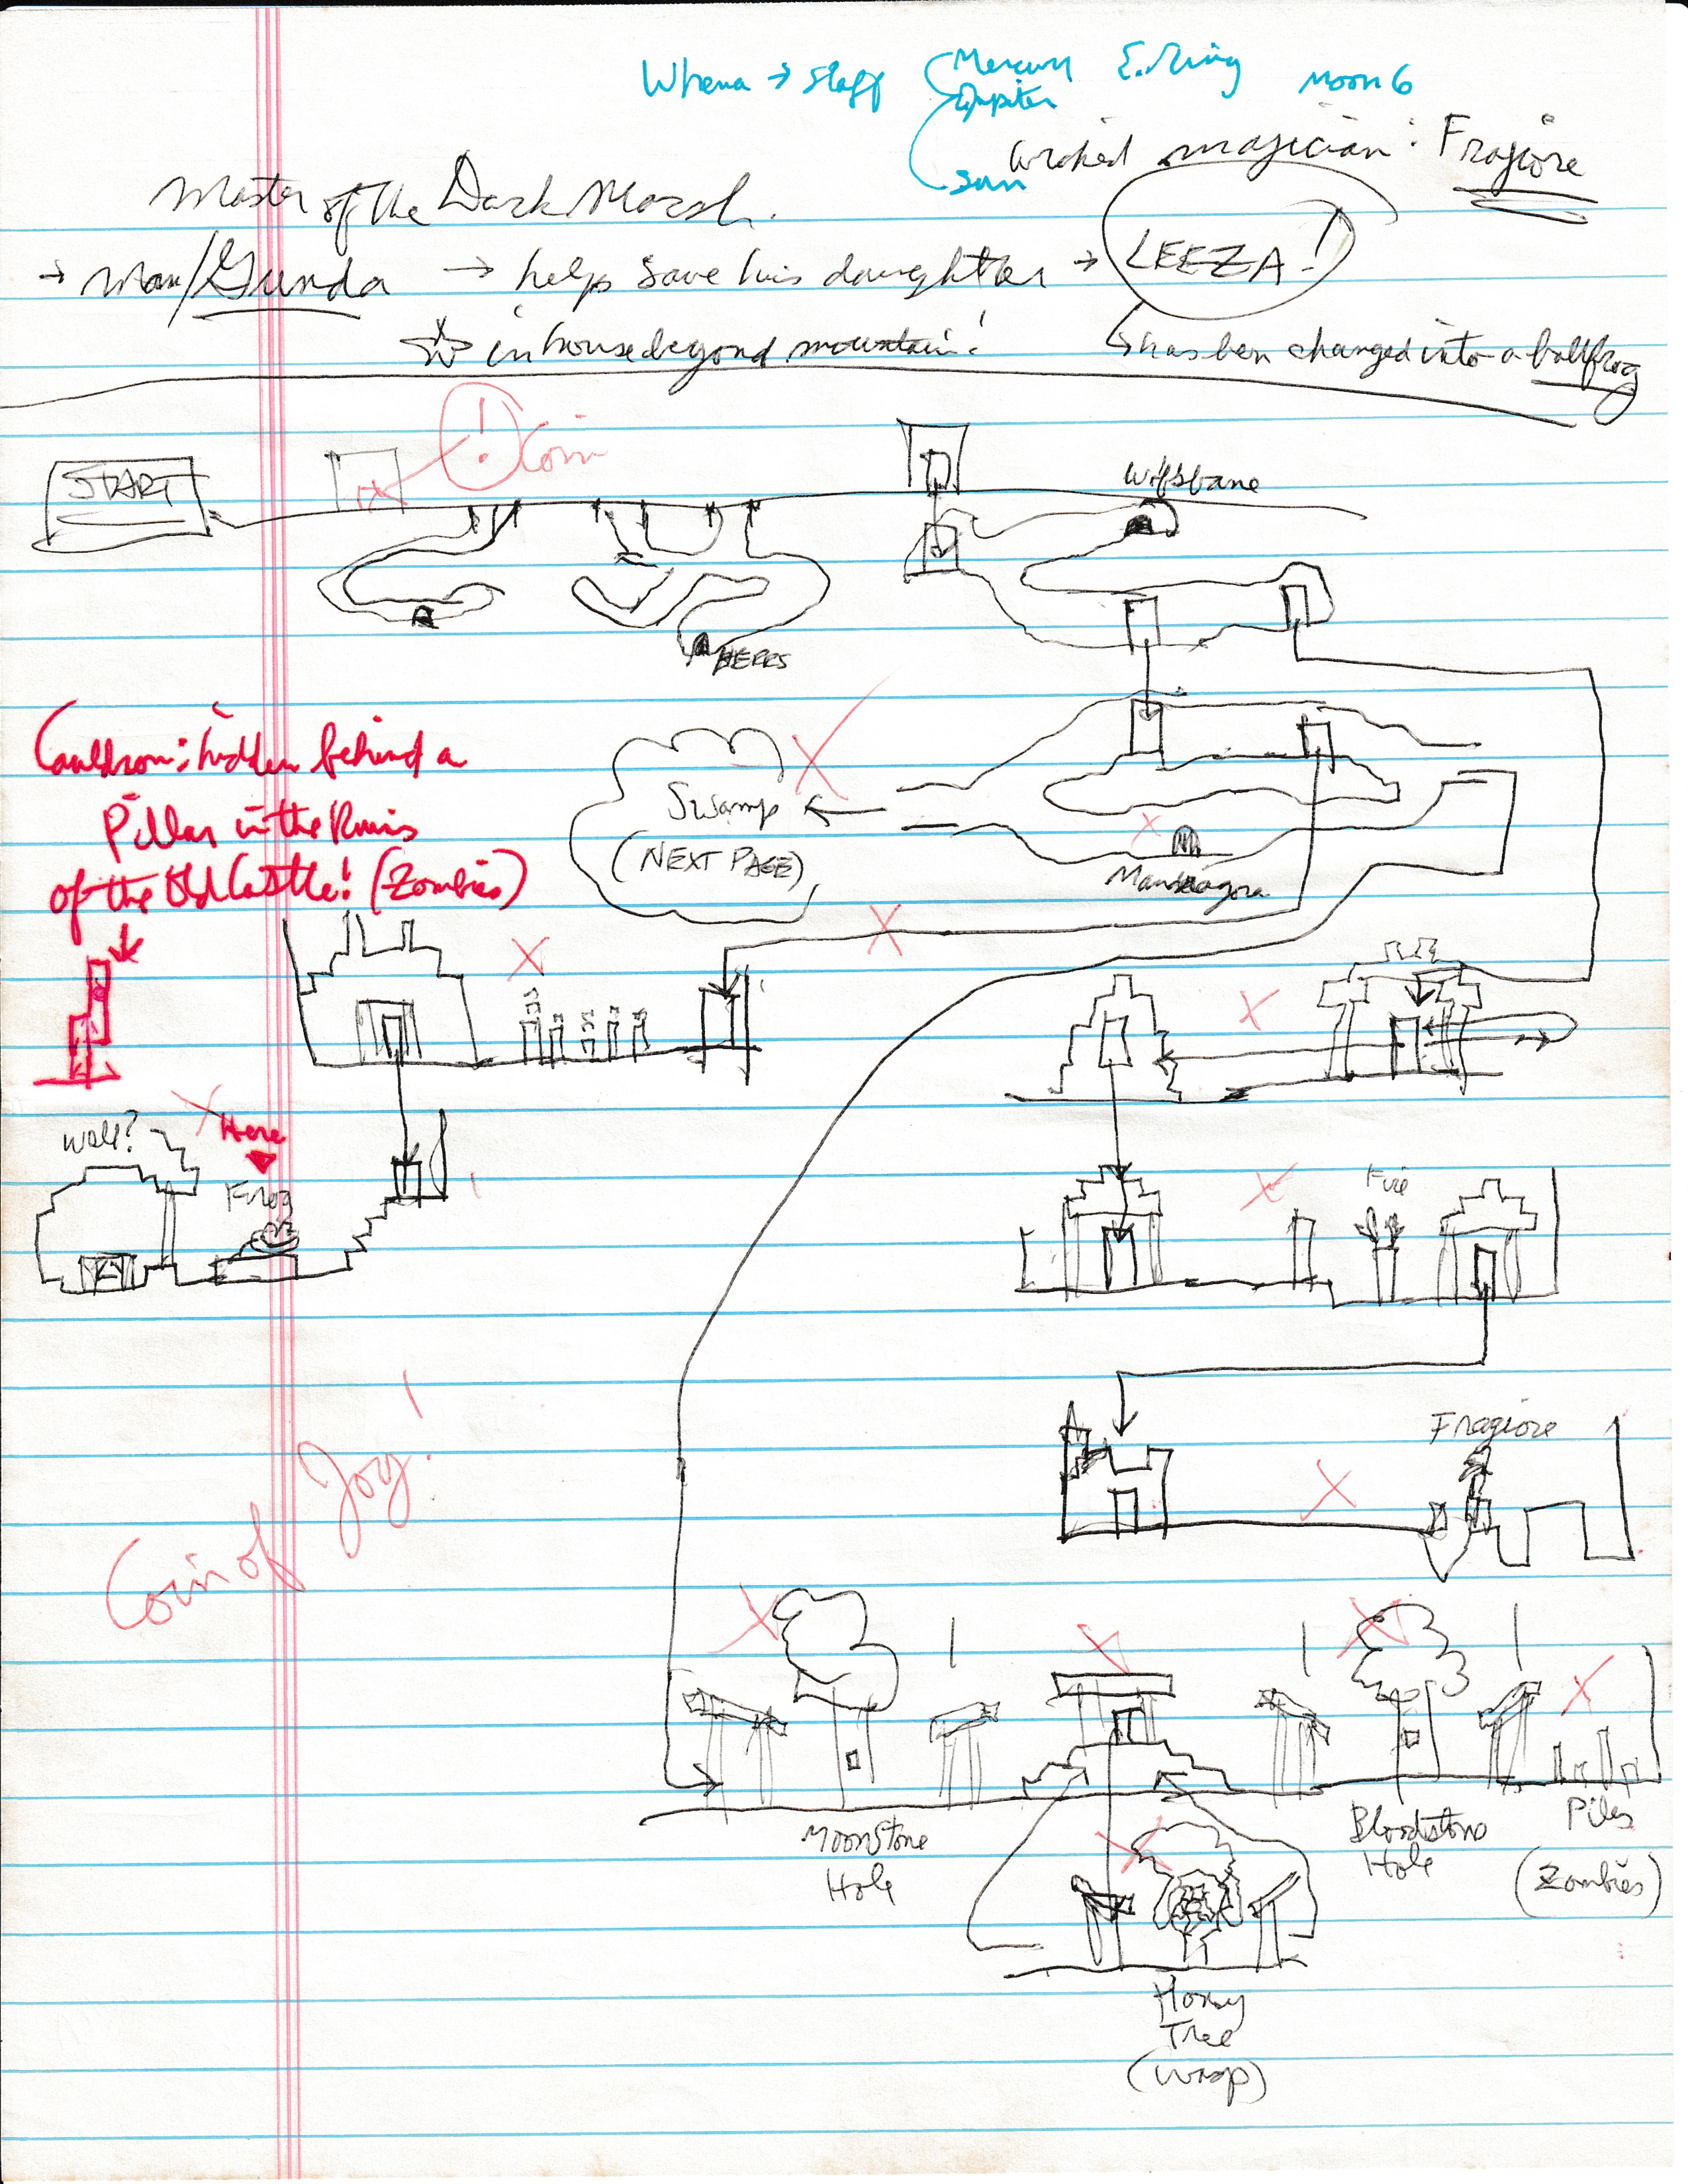 Whena → Staff Mercury E. Ring Moon 6
Jupiter
Sun
wicked magician: Fragiore
Master of the Dark Marsh.
→ Man/Gunda → helps save his daughter → LEEZA!
in house beyond mountain!
↳ has been changed into a bullfrog
! Coin
START
Wolfsbane
HERBS
Cauldron: hidden behind a
Pillar in the Ruins
of the Old Castle! (Zombies)
Swamp
(NEXT PAGE)
Mandragora
Well?
Here
Frog
Fire
Fragiore
Coin of Joy!
Moonstone
Hole
Bloodstone
Hole
Piles
(Zombies)
Honey
Tree
(Wasp)